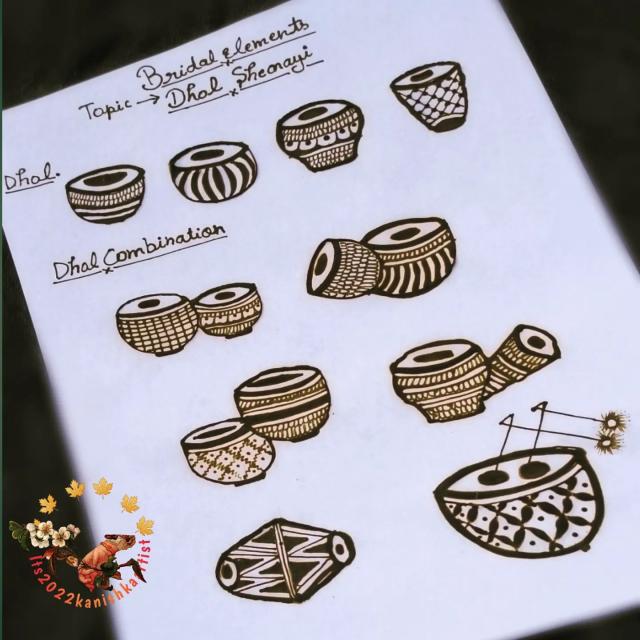 Bridal elements
Topic → Dhal Shenayi
Dhal.
Dhal Combination
Its2022kanishkartist